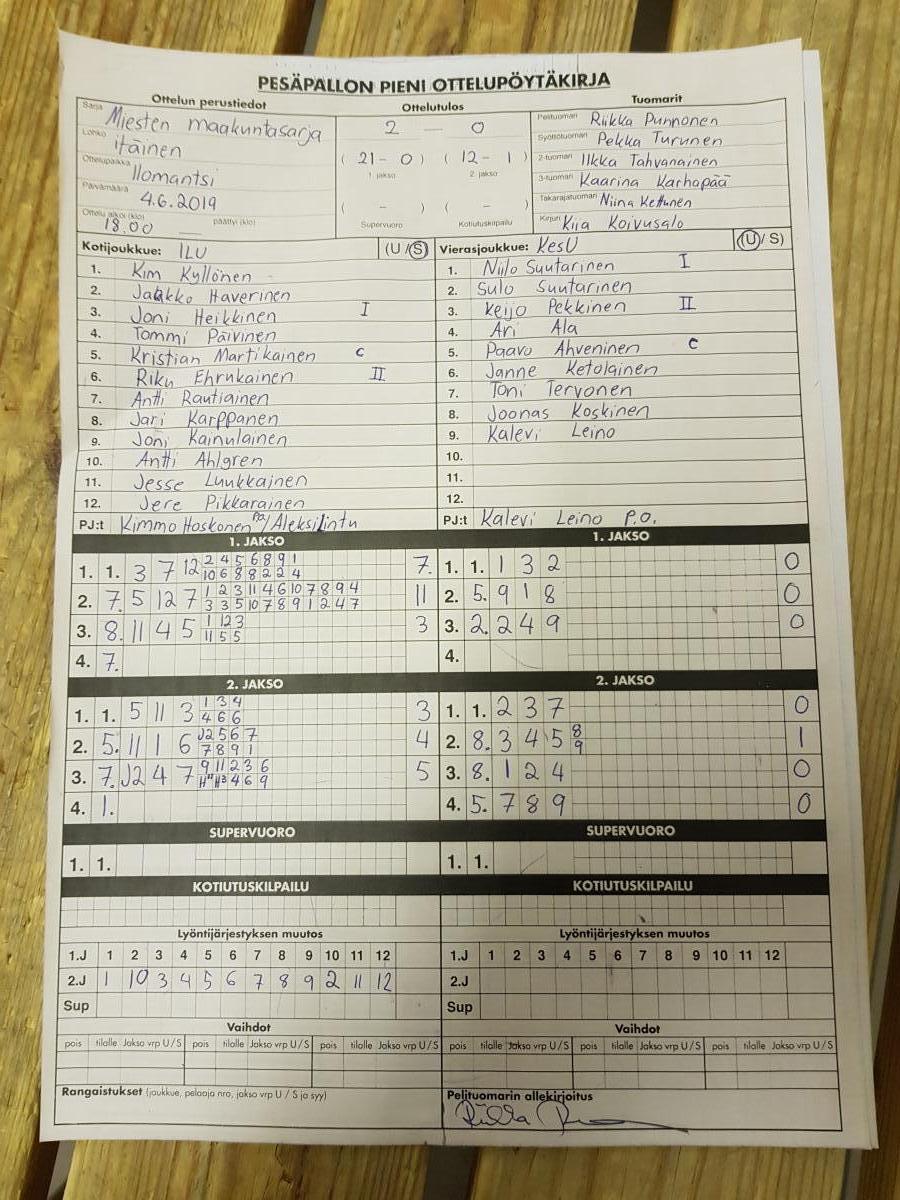 PESÄPALLON PIENI OTTELUPÖYTÄKIRJA
Ottelun perustiedot Ottelutulos Tuomarit
Sarja Miesten maakuntasarja
Lohko itäinen
Ottelupaikka Ilomantsi
Päivämäärä 4.6.2019
Ottelu alkoi (klo) 18.00 päättyi (klo)
2 — 0
( 21 - 0 ) ( 12 - 1 )
1. jakso 2. jakso
( - ) ( - )
Supervuoro Kotiutuskilpailu
Pelituomari Riikka Punnonen
Syöttötuomari Pekka Turunen
2-tuomari Ilkka Tahvanainen
3-tuomari Kaarina Karhapää
Takarajatuomari Niina Kettunen
Kirjuri Kiia Koivusalo
Kotijoukkue: ILU (U / S)
1. Kim Kyllönen
2. Jaakko Haverinen
3. Joni Heikkinen I
4. Tommi Päivinen
5. Kristian Martikainen C
6. Riku Ehrukainen II
7. Antti Rautiainen
8. Jari Karppanen
9. Joni Kainulainen
10. Antti Ahlgren
11. Jesse Luukkainen
12. Jere Pikkarainen
PJ:t Kimmo Hoskonen PA/Aleksi Lintu
Vierasjoukkue: KesU (U / S)
1. Niilo Suutarinen I
2. Sulo Suutarinen
3. Keijo Pekkinen II
4. Ari Ala
5. Paavo Ahveninen C
6. Janne Ketolainen
7. Toni Tervonen
8. Joonas Koskinen
9. Kalevi Leino
10.
11.
12.
PJ:t Kalevi Leino P.O.
1. JAKSO
1. 1. 3 7 12 2 4 5 6 8 9 1 7
10 6 8 8 2 2 4
2. 7. 5 12 7 1 2 3 11 4 6 10 7 8 9 4 11
3 3 5 10 7 8 9 1 2 4 7
3. 8. 11 4 5 1 12 3 3
11 5 5
4. 7.
1. JAKSO
1. 1. 1 3 2 0
2. 5. 9 1 8 0
3. 2. 2 4 9 0
4.
2. JAKSO
1. 1. 5 11 3 1 3 4 3
4 6 6
2. 5. 11 1 6 J2 5 6 7 4
7 8 9 1
3. 7. J2 4 7 9 11 2 3 6 5
4 6 9
4. 1.
2. JAKSO
1. 1. 2 3 7 0
2. 8. 3 4 5 8 1
9
3. 8. 1 2 4 0
4. 5. 7 8 9 0
SUPERVUORO SUPERVUORO
1. 1. 1. 1.
KOTIUTUSKILPAILU KOTIUTUSKILPAILU
Lyöntijärjestyksen muutos Lyöntijärjestyksen muutos
1.J 1 2 3 4 5 6 7 8 9 10 11 12 1.J 1 2 3 4 5 6 7 8 9 10 11 12
2.J 1 10 3 4 5 6 7 8 9 2 11 12 2.J
Sup Sup
Vaihdot Vaihdot
pois tilalle Jakso vrp U / S pois tilalle Jakso vrp U / S pois tilalle Jakso vrp U / S pois tilalle Jakso vrp U / S pois tilalle Jakso vrp U / S pois tilalle Jakso vrp U / S
Rangaistukset (joukkue, pelaaja nro, jakso vrp U / S ja syy) Pelituomarin allekirjoitus